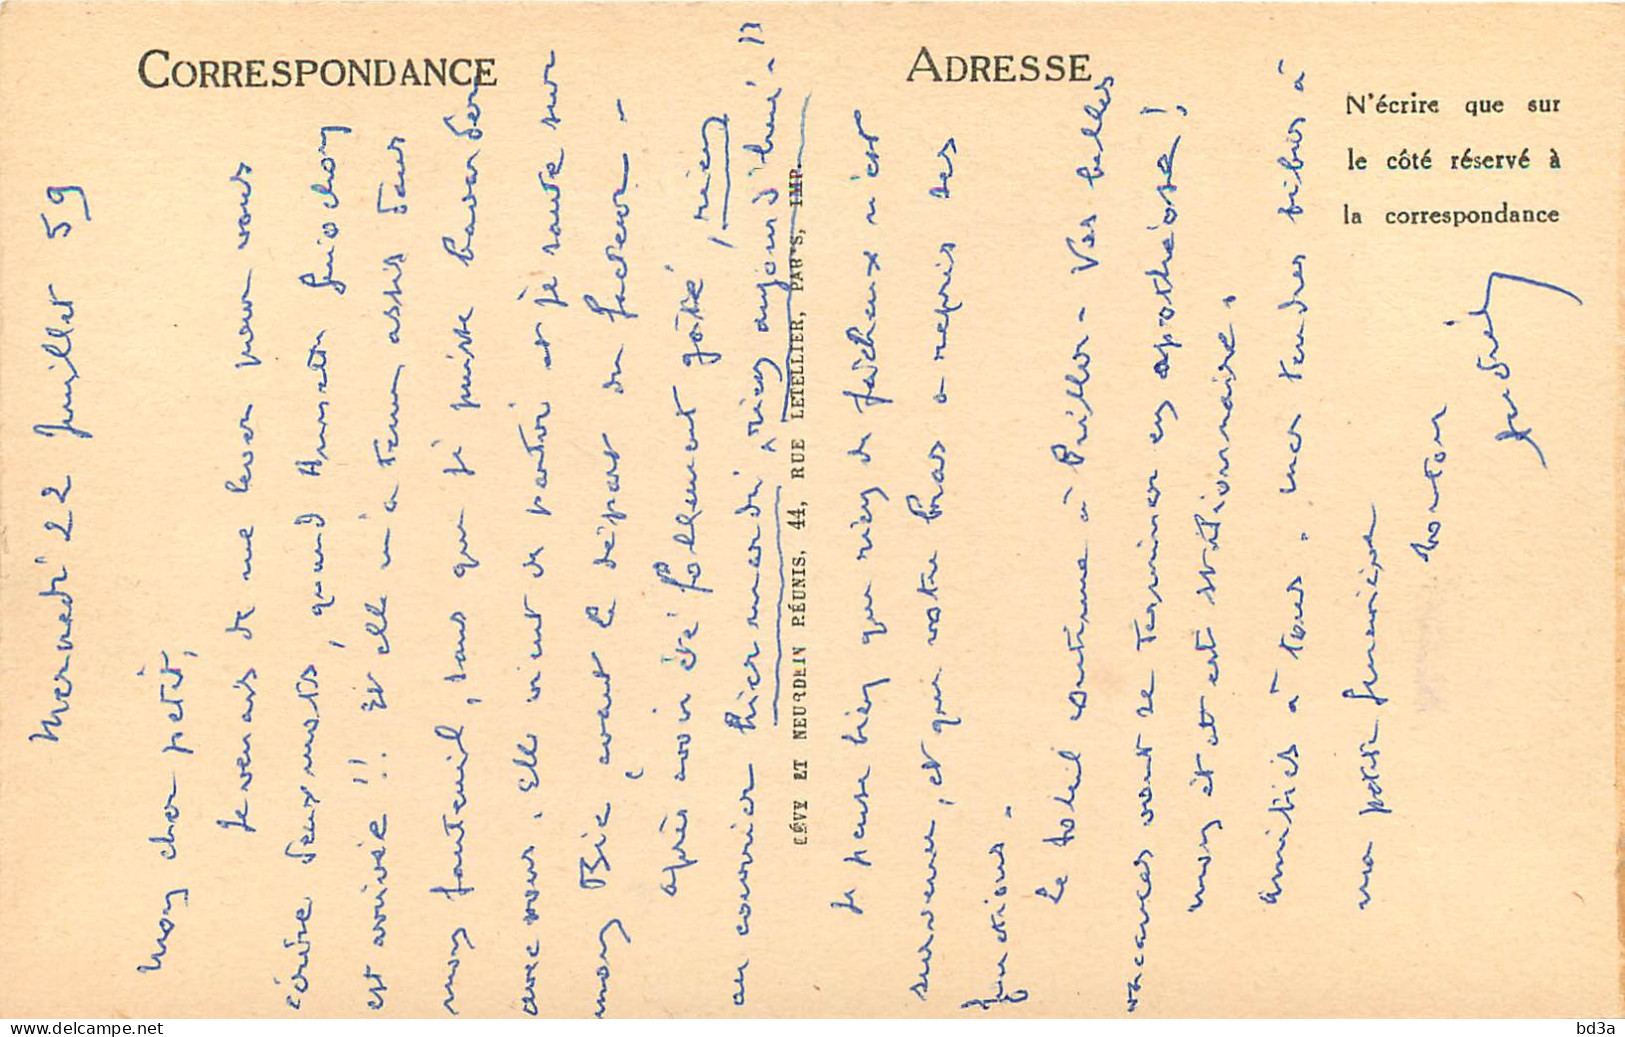 CORRESPONDANCE
ADRESSE
N'écrire que sur
le côté réservé à
la correspondance
LÉVY ET NEURDEIN RÉUNIS, 44, RUE LETELLIER, PARIS, IMP.
Mercredi 22 Juillet 59
Mon cher petit,
Je venais de me lever pour vous
écrire deux mots, quand Annette Guichon
est arrivée !! Et elle m'a tenu assis dans
mon fauteuil, sans que je puisse bavarder
avec vous. Elle vient de partir et je saute sur
mon Bic avant le départ du facteur -
après avoir été follement gâté, rien
au courrier hier mardi, "rien aujourd'hui - "
Je pense bien que rien de fâcheux n'est
survenu, et que votre bras a repris ses
fonctions -
Le soleil continue à briller - Vos belles
vacances vont se terminer en apothéose !
mon état est stationnaire.
Amitiés à tous. mes tendres bises à
ma petite
tonton